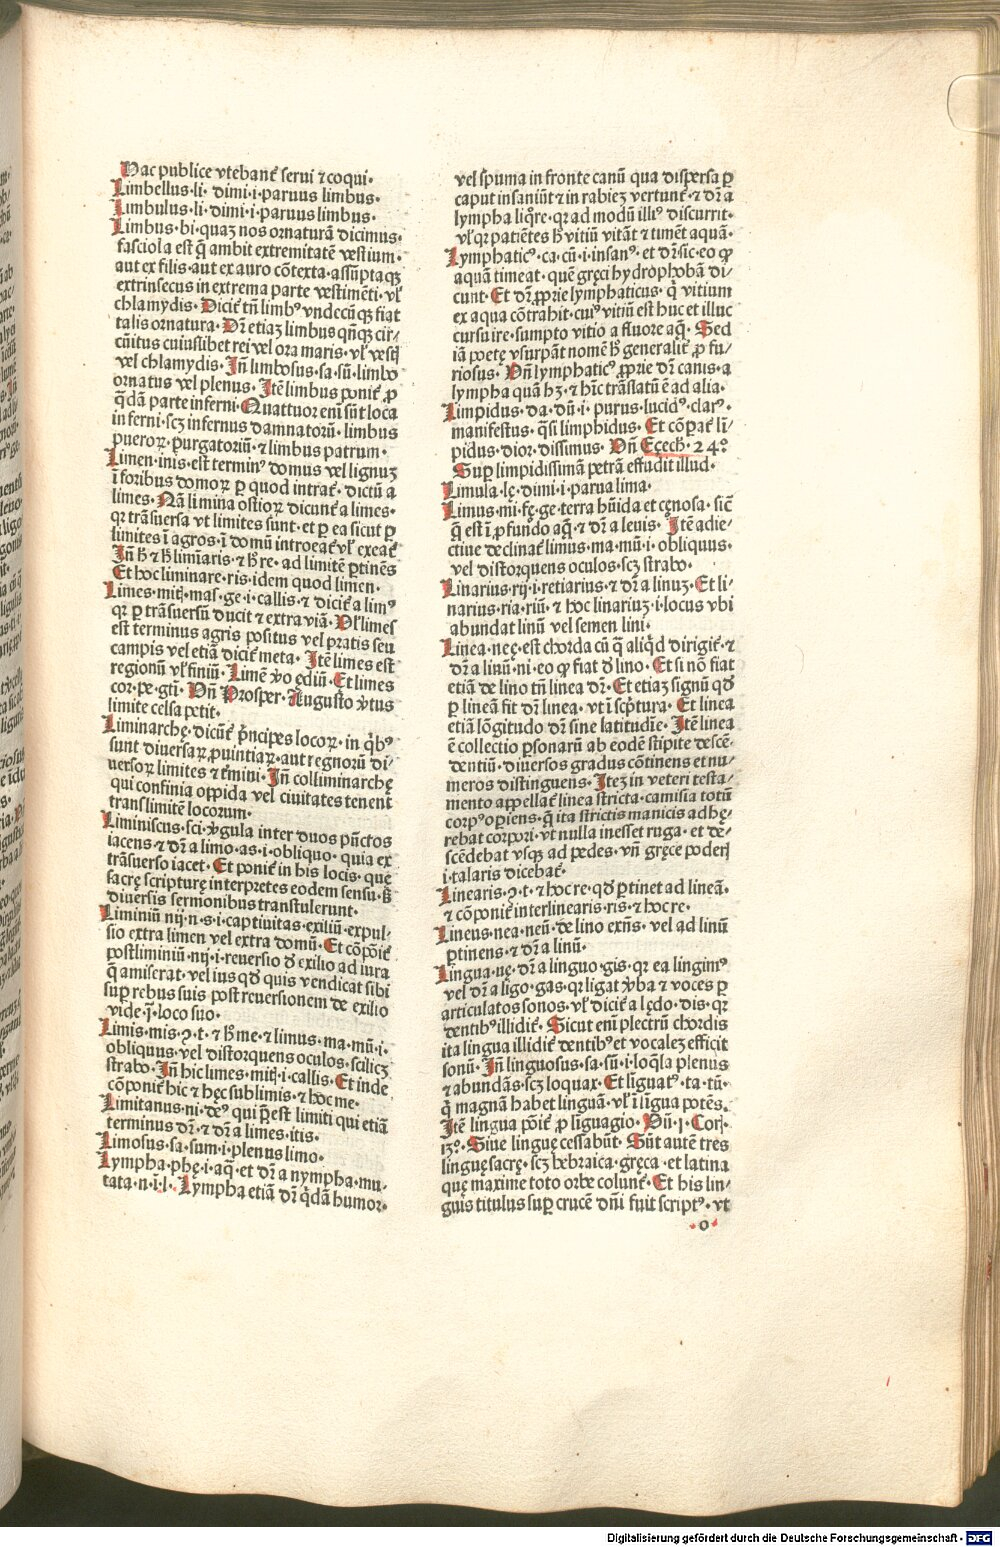 Hac publice vtebanť serui ⁊ coqui·
Limbellus·li· dimi·i·paruus limbus·
Limbulus·li·dimi·i·paruus limbus·
Limbus·bi·quaꝫ nos ornaturā dicimus·
fasciola est q̄ ambit extremitatē vestium·
aut ex filis·aut ex auro cōtexta·assūptaqꝫ
extrinsecus in extrema parte vestimēti·vľ
chlamydis· Diciť tn̄ limbꝰ vndecūqꝫ fiat
talis ornatura· Dr̄ etiaꝫ limbus qn̄qꝫ cir⸗
cūitus cuiuslibet rei vel ora maris·vľ vestꝭ
vel chlamydis· Jn̄ limbosus·sa·sū·limbo
ornatus vel plenus· Jtē limbus poniť ꝓ
q̄dā parte inferni·Quattuor eni sūt loca
inferni·scꝫ infernus damnatorū·limbus
pueroꝝ·purgatoriū·⁊ limbus patrum·
Limen·inis·est terminꝰ domus vel lignuꝫ
ī foribus domoꝝ ꝑ quod intrať·dictū a
limes· Nā limina ostioꝝ dicunť a limes·
qꝛ trāsuersa vt limites sunt·et ꝑ ea sicut ꝑ
limites ī agros·ī domū introeať vľ exeať
Jn̄ h̄ ⁊ h̄ limīaris·⁊ h̄ re·ad limitē ꝑtinēs
Et hoc liminare·ris·idem quod limen·
Limes·mitꝭ·mas·ge·i·callis·⁊ diciť a limꝰ
qꝛ ꝑ trāsuersū ducit ⁊ extra viā· Vľ limes
est terminus agris positus vel pratis seu
campis vel etiā diciť meta· Jtē limes est
regionū vľ finiū· Limē v̓o ediū·Et limes
cor·pe·gti· Vn̄ Prosper·Augusto v̓tus
limite celsa petit·
Liminarchę·dicunť p̄ncipes locoꝝ·in q̇bꝰ
sunt diuersaꝝ ꝓuintiaꝝ·aut regnorū di⸗
uersoꝝ limites ⁊ tmini·Jn̄ colliminarchę
qui confinia oppida vel ciuitates tenent
translimitē locorum·
Liminiscus·sci·v̓gula inter duos pūctos
iacens·⁊ dr̄ a limo·as·i·obliquo·quia ex
trāsuerso iacet·Et poniť in his locis·que
sacrę scripturę interpretes eodem sensu·sꝭ
diuersis sermonibus transtulerunt·
Liminiū nij·n·s·i·captiuitas·exiliū·expul⸗
sio extra limen vel extra domū·Et cōpōiť
postliminiū·nij·i·reuersio ꝺ̄ exilio ad iura
q̄ amiserat·vel ius qd̄ quis vendicat sibi
suꝑ rebus suis post reuersionem de exilio
vide·j̄·loco suo·
Limis·mis·ꝯ·t·⁊ h̄ me·⁊ limus·ma·mū·i·
obliquus·vel distorquens oculos·scilicꝫ
strabo·Jn̄ hic limes·mitꝭ·i·callis·Et inde
cōponiť hic ⁊ hęc sublimis·⁊ hoc me·
Limitanus·ni·deꝰ qui p̄est limiti qui etiā
terminus dr̄·⁊ dr̄ a limes·itis·
Limosus·sa·sum·i·plenus limo·
Lympha·phę·i·aq̄·et dr̄ a nympha·mu⸗
tata·n·i·l· Lympha etiā dr̄ q̄dā humor·
vel spuma in fronte canū qua dispersa ꝑ
caput insaniūt ⁊ in rabieꝫ vertunť·⁊ dr̄ a
lympha liq̄re·qꝛ ad modū illiꝰ discurrit·
vľ qꝛ patiētes h̄ vitiū vitāt ⁊ timēt aquā·
Lymphaticꝰ·ca·cū·i·insanꝰ·et dr̄ sic·eo ꝙ
aquā timeat·quē gręci hydrophobā di⸗
cunt·Et dr̄ ꝓprie lymphaticus·q̓ vitium
ex aqua cōtrahit·cuiꝰ vitiū est huc et illuc
cursu ire·sumpto vitio a fluore aq̄·Sed
iā poetę vsurpāt nomē h̄ generaliť ꝓ fu⸗
riosus· Vn̄ lymphaticꝰ ꝓprie dr̄ canis·a
lympha quā hꝫ·⁊ hīc trāslatū ē ad alia·
Limpidus·da·dū·i·purus·lucidꝰ·clarꝰ·
manifestus·q̄si limphidus·Et cōpaťlī⸗
pidus·dior·dissimus· Vn̄ Eçech·24°
Suꝑ limpidissimā petrā effudit illud·
Limula·lę·dimi·i·parua lima·
Limus·mi·fę·ge·terra hūida et cęnosa·sic̄
q̄ est ī ꝓfundo aq̄·⁊ dr̄ a leuis· Jtē adie⸗
ctiue declinať limus·ma·mū·i·obliquus·
vel distorquens oculos·scꝫ strabo·
Linarius·rij·i·retiarius·⁊ dr̄ a linuꝫ·Et li⸗
narius·ria·riū·⁊ hoc linariuꝫ·i·locus vbi
abundat linū vel semen lini·
Linea·neę·est chorda cū q̄ aliq̄d dirigiť·⁊
dr̄ a linū·ni·eo ꝙ fiat ꝺ̄ lino·Et si nō fiat
etiā de lino tn̄ linea dr̄·Et etiaꝫ signū qd̄
ꝑ lineā fit dr̄ linea·vt ī sc̄ptura· Et linea
etiā lōgitudo dr̄ sine latitudīe·Jtē linea
ē collectio ꝑsonarū ab eodē stipite descē⸗
dentiū·diuersos gradus cōtinens et nu⸗
meros distinguens·Jteꝫ in veteri testa⸗
mento appellať linea stricta·camisia totū
corpꝰ opiens·q̄ ita strictis manicis adhę⸗
rebat corpori·vt nulla inesset ruga·et de⸗
scēdebat vsqꝫ ad pedes·vn̄ gręce poderꝭ
i·talaris dicebať·
Linearis·ꝯ·t·⁊ hoc re·qd̄ ꝑtinet ad lineā·
⁊ cōponiť interlinearis·ris·⁊ hoc re·
Lineus·nea·neū·de lino exn̄s·vel ad linū
ꝑtinens·⁊ dr̄ a linū·
Lingua·uę·dr̄ a linguo·gis·qꝛ ea lingimꝰ
vel dr̄ a ligo·gas·qꝛ ligat v̓ba ⁊ voces ꝑ
articulatos sonos·vľ diciť a lędo·dis·qꝛ
dentibꝰ illidiť·Sicut eni plectrū chordis
ita lingua illidiť dentibꝰ et vocaleꝫ efficit
sonū·Jn̄ linguosus·sa·sū·i·loq̄la plenus
⁊ abundās·scꝫ loquax·Et liguatꝰ·ta·tū·
q̓ magnā habet linguā·vľ ī lingua potēs·
Jtē lingua pōiť ꝓ liguagio· Vn̄·j·Corj·
13°·Siue linguę cessabūt·Sūt autē tres
linguę sacrę·scꝫ hebraica·gręca·et latina
quę maxime toto orbe colunť·Et his lin⸗
guis titulus suꝑ crucē dn̄i fuit scriptꝰ·vt
·o·
Digitalisierung gefördert durch die Deutsche Forschungsgemeinschaft - DFG